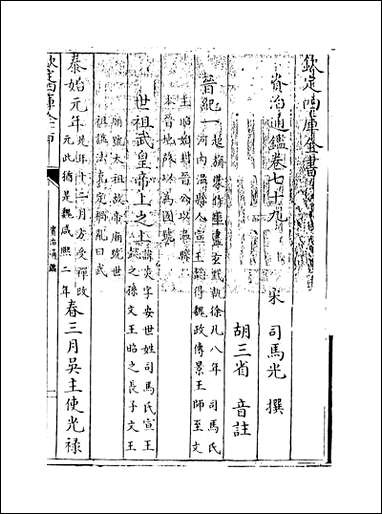 欽定四庫全書
資治通鑑卷七十九　宋　司馬光　撰
胡三省　音註
晉紀一
起旃蒙作噩盡玄黓執徐凡八年　司馬氏
河內溫縣人宣王懿得魏政傳景王師至文
王昭始封晉公以溫縣
本晉地故以為國號
世祖武皇帝上之上
諱炎字安世姓司馬氏宣王
懿之孫文王昭之長子文王
廟號太祖故帝廟號世
祖諡法克定禍亂曰武
泰始元年
是年十二月方受禪改
元此猶是魏咸熙二年
春三月吳主使光祿
欽定四庫全書
資治通鑑